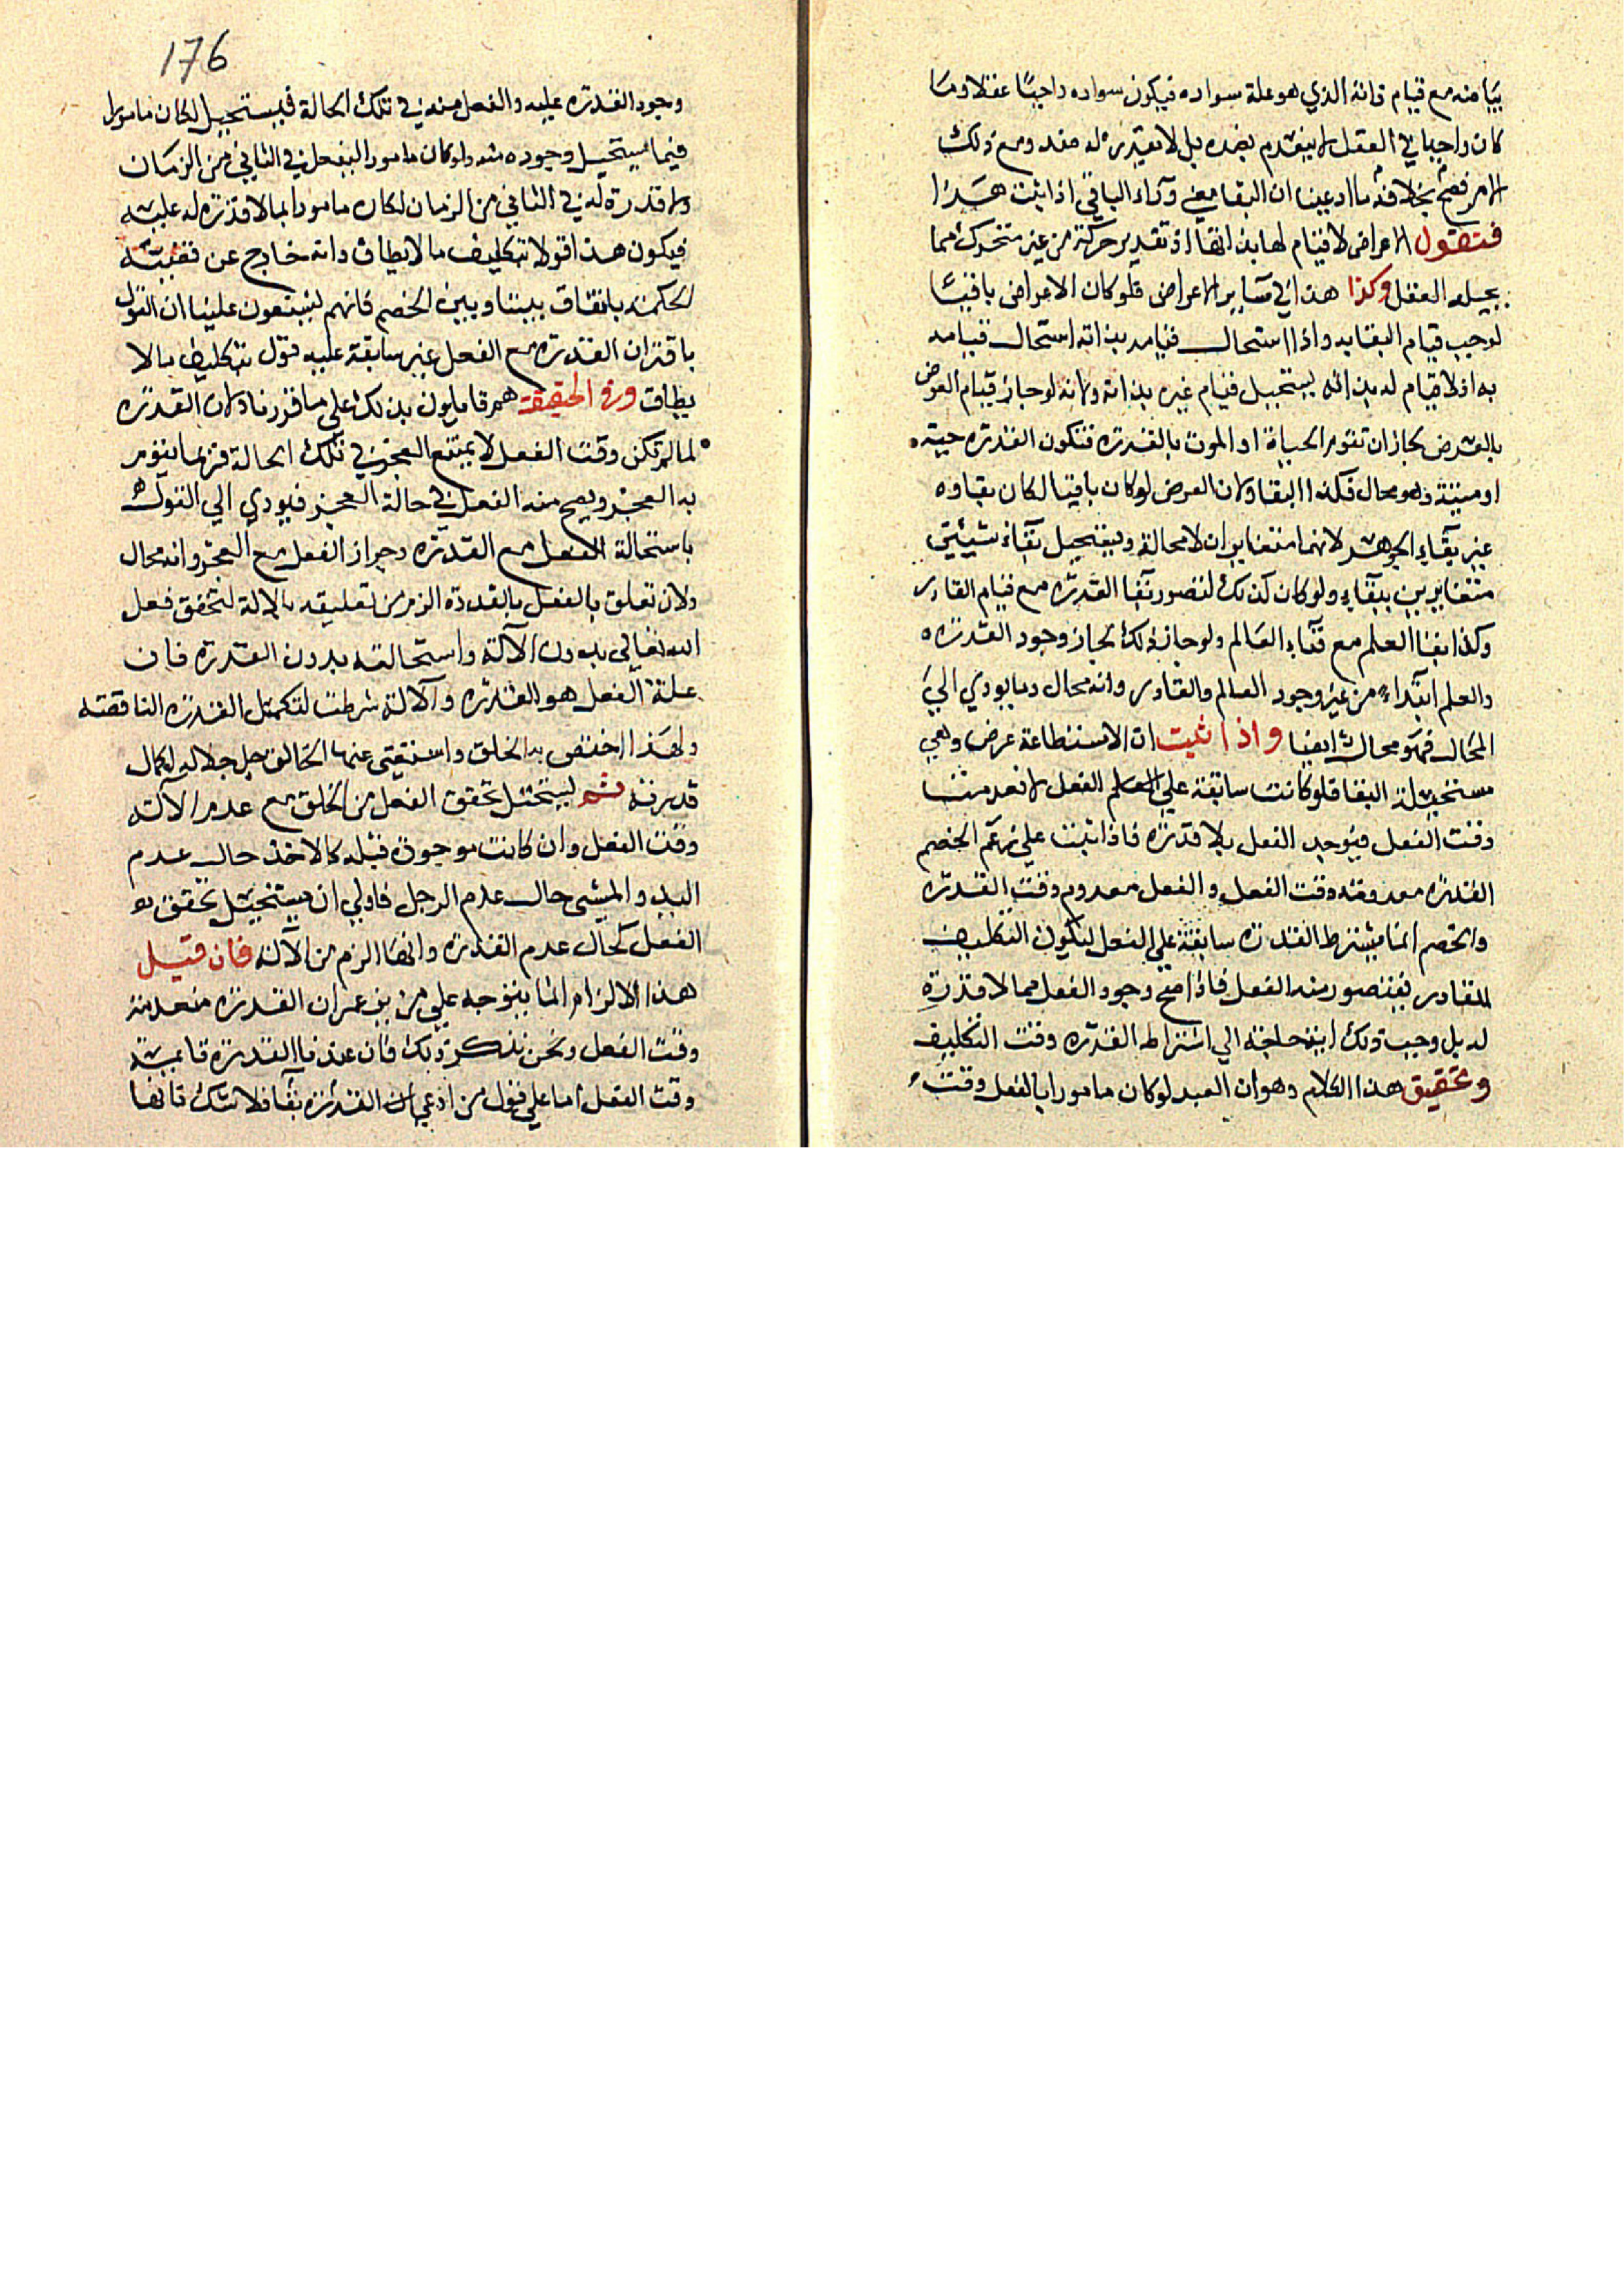 بياضه مع قيام ذاته الذي هو علة سواده فيكون سواده واجبا عقلا وما
كان واجبا في العقل لا ينعدم بضده بل لا تقدير له ضد ومع ذلك
الامر فصح بخلافه ما ادعينا ان البقا معنى وراء الباقي اذا ثبت هذا
فنقول الاعراض لا قيام لها بذاتها اذ تقدير حركة من غير متحرك مما
يحيله العقل وكذا هذا في ساير الاعراض فلو كان الاعراض باقيا
لوجب قيام البقا به واذا استحال قيامه بذاته استحال قيامه
به اذ لا قيام له بذاته يستحيل قيام غيره بذاته ولانه لو جاز قيام العرض
بالعرض لجاز ان تقوم الحياة او الموت بالقدرة فتكون القدرة حية
او ميتة وهو محال فكذا البقا ولان العرض لو كان باقيا لكان بقاوه
غير بقاء الجوهر لانهما متغايران لا محالة ويستحيل بقاء شيئين
متغايرين ببقاء ولو كان كذلك لتصور بقا القدرة مع فناء القادر
وكذا بقا العلم مع فناء العالم ولو جاز ذلك لجاز وجود القدرة
والعلم ابتداء من غير وجود العالم والقادر وانه محال وما يودي الي
المحال فهو محال ايضا واذا ثبت ان الاستطاعة عرض وهي
مستحيلة البقا فلو كانت سابقة على الفعل لانعدمت
وقت الفعل فيوجد الفعل بلا قدرة فاذا ثبت على زعم الخصم
القدرة معدومة وقت الفعل والفعل معدوم وقت القدرة
والخصم انما يشترط القدرة سابقة على الفعل ليكون التكليف
للقادر فيتصور منه الفعل فاذا صح وجود الفعل مما لا قدرة
له بل وجب ذلك اية حاجة الي اشتراط القدرة وقت التكليف
وتحقيق هذا الكلام وهو ان العبد لو كان مامورا بالفعل وقت
176
وجود القدرة عليه والفعل منه في تلك الحالة يستحيل لكان مامورا
فيما يستحيل وجوده منه ولو كان مامورا بالفعل في الثاني من الزمان
ولا قدرة له في الثاني من الزمان لكان مامورا بما لا قدرة له عليه
فيكون هذا قولا بتكليف ما لا يطاق وانه خارج عن قضية
الحكمة باتفاق بيننا وبين الخصم فانهم يشنعون علينا ان القول
باقتران القدرة مع الفعل غير سابقة عليه قول بتكليف ما لا
يطاق وفي الحقيقة هم قايلون بذلك على ما قررنا ولان القدرة
لما لم تكن وقت الفعل لا يمتنع العجز في تلك الحالة فربما يقوم
به العجز ويصح منه الفعل في حالة العجز فيودي الي القول
باستحالة الفعل مع القدرة وجواز الفعل مع العجز وانه محال
ولان تعلق بالفعل بالقدرة الزم من تعليقه بالالة لتحقق فعل
الله تعالى بدون الآلة واستحالته بدون القدرة فان
علة الفعل هو القدرة والآلة شرطت لتكمل القدرة الناقصة
ولهذا اختص به الخلق واستغنى عنها الخالق جل جلاله لكمال
قدرته ثم يستحيل تحقق الفعل من الخلق مع عدم الآلة
وقت الفعل وان كانت موجودة قبله كالاخذ حال عدم
اليد والمشي حال عدم الرجل فاولى ان يستحيل تحقق
الفعل كحال عدم القدرة وانها الزم من الآلة فان قيل
هذا الالزام انما يتوجه على من يزعم ان القدرة منعدمة
وقت الفعل ونحن ننكر ذلك فان عندنا القدرة قايمة
وقت الفعل اما على قول من ادعى ان القدرة بقا فلا شك فانها